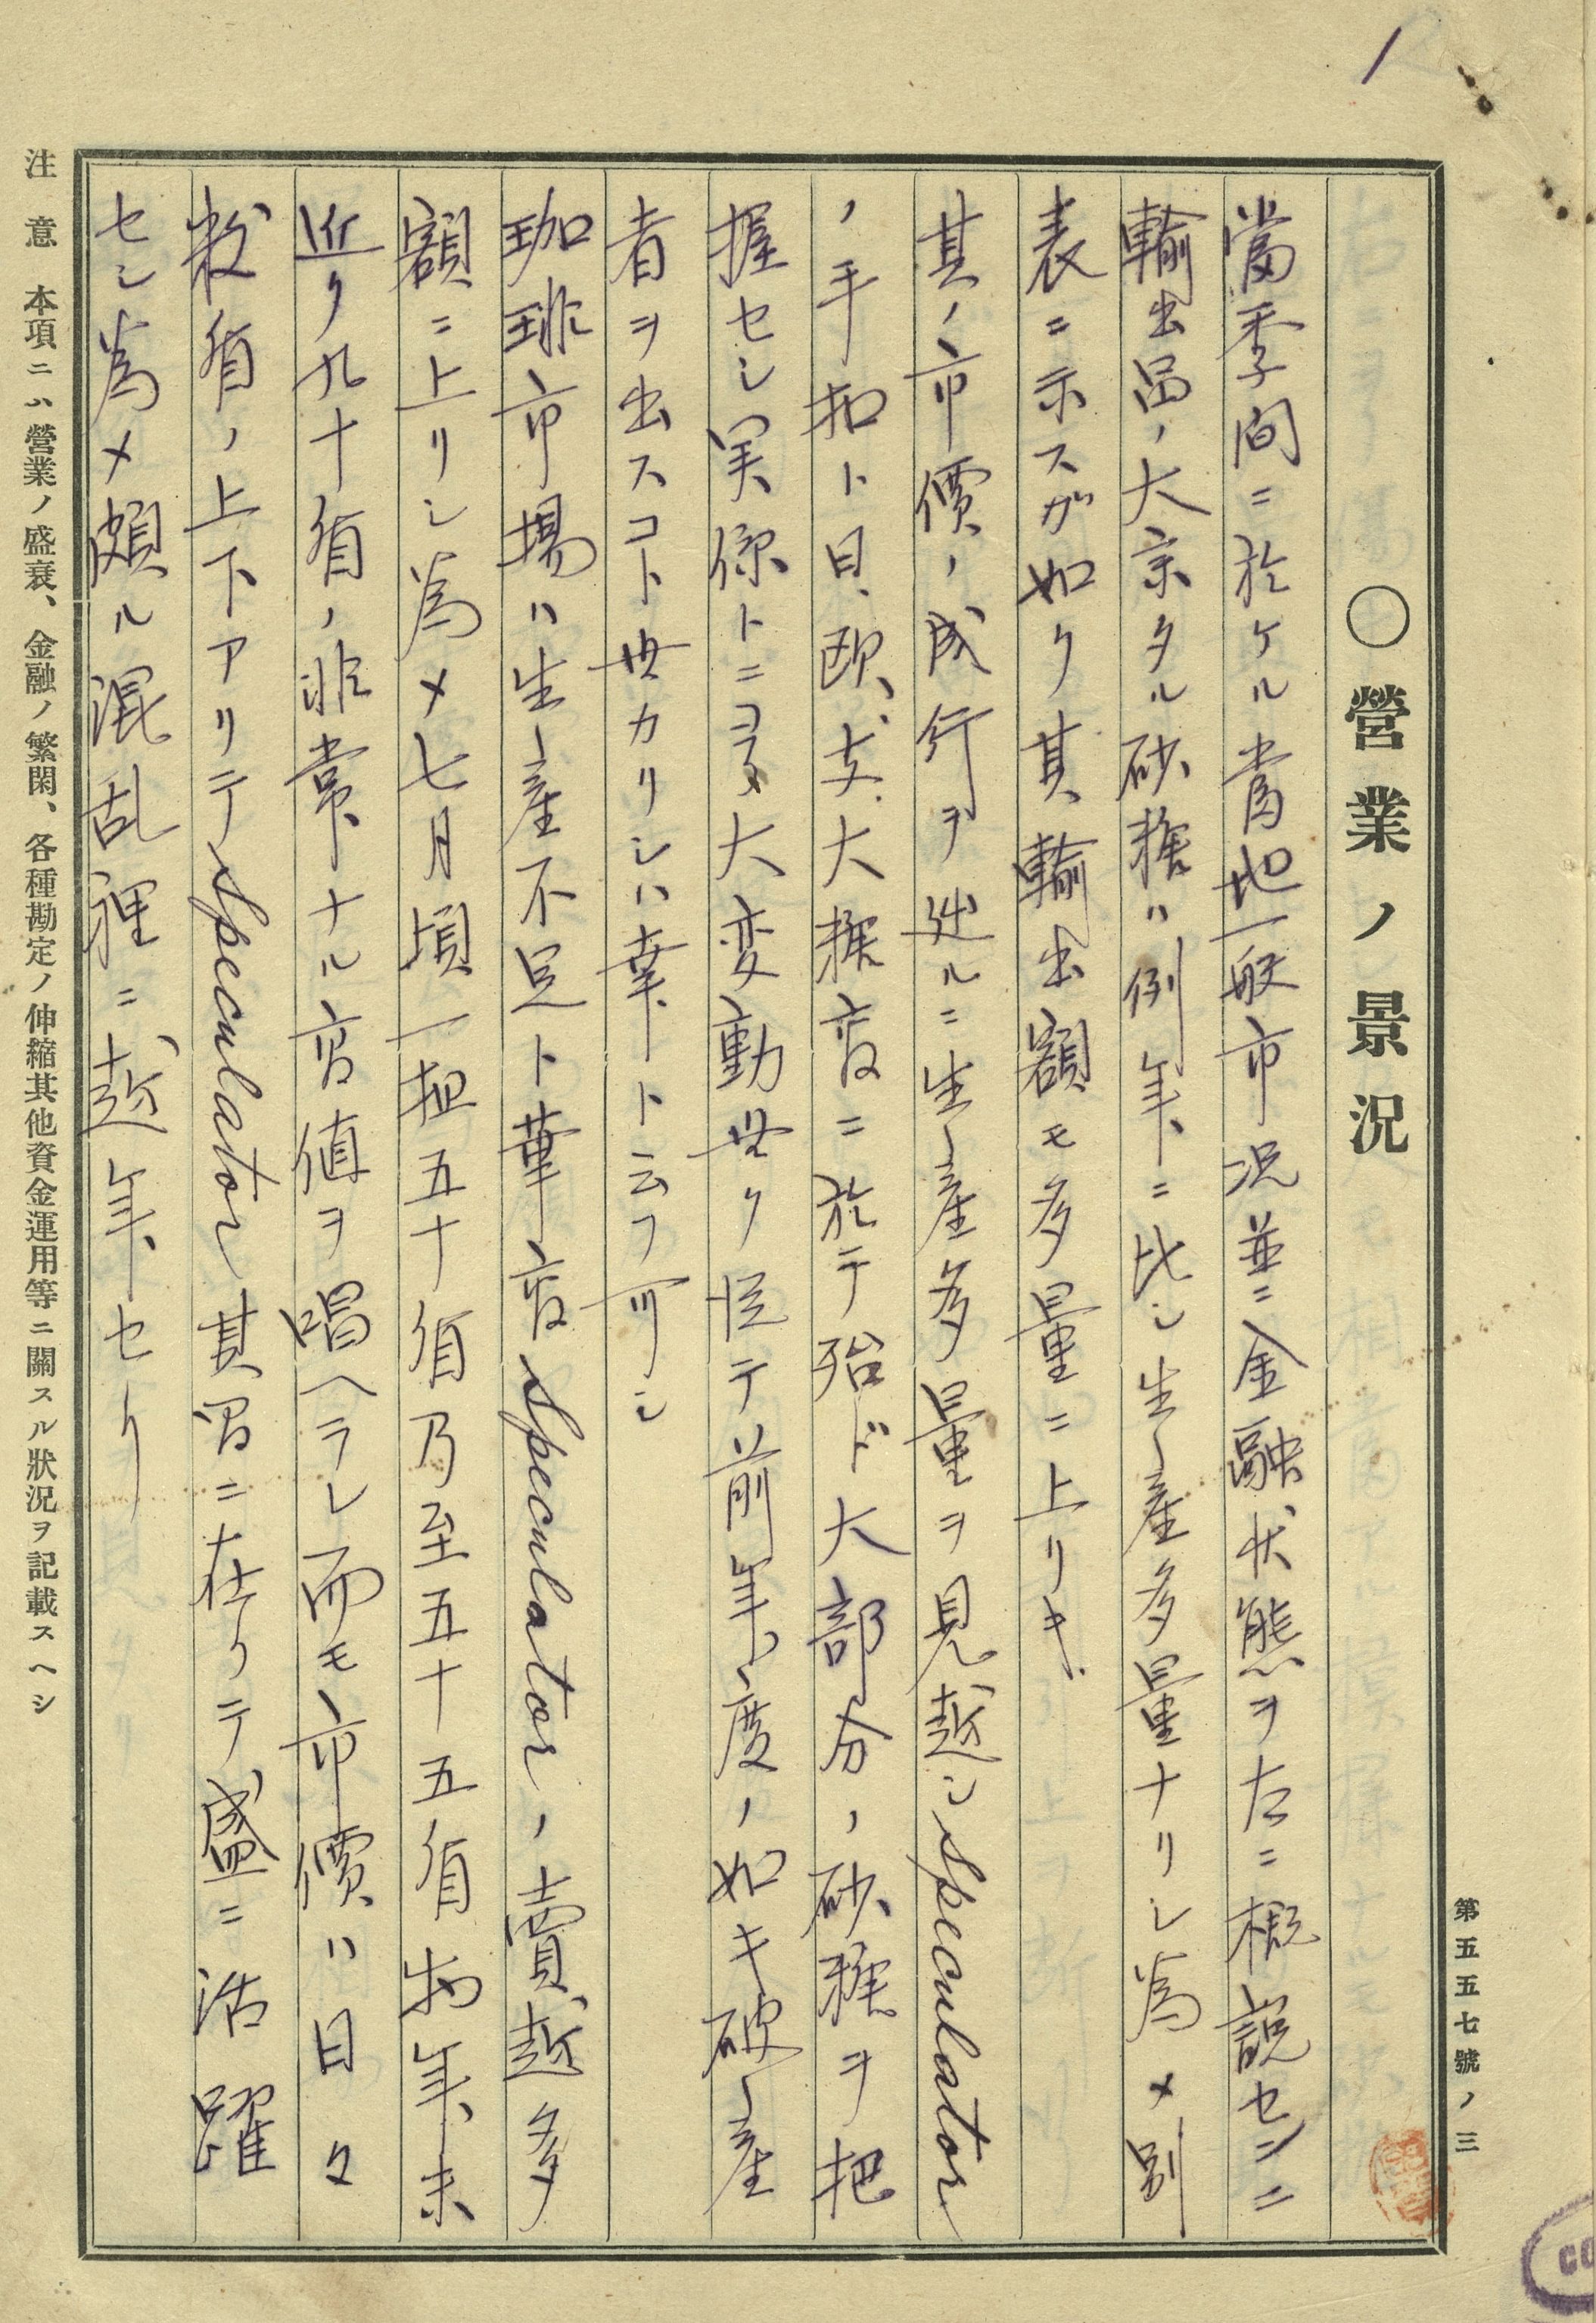 第五五七號ノ三
〇營業ノ景况
當季間ニ於ケル當地一般市况並ニ金融状態ヲ左ニ概説センニ
輸出品ノ大宗タル砂糖ハ例年ニ比シ生産多量ナリシ為メ別
表ニ示スガ如ク其輸出額モ多量ニ上リキ
其ノ市價ノ成行ヲ述ルニ生産多量ヲ見越シspeculator
ノ手扣ト日、欧、支、大糖商ニ於テ殆ド大部分ノ砂糖ヲ把
握セシ関係トニヨリ大変動無ク従テ前年度ノ如キ破産
者ヲ出スコト無カリシハ幸ト云フ可シ
珈琲市場ハ生産不足ト華商speculatorノ賣越多
額ニ上リシ為メ七月頃一担五十盾乃至五十五盾ガ年末
近ク九十盾ノ非常ナル高値ヲ唱ヘラレ而モ市價ハ日々
数盾ノ上下アリテspeculator其間ニ在リテ盛ニ活躍
セシ為メ頗ル混乱裡ニ越年セリ
注意 本項ニハ營業ノ盛衰、金融ノ繁閑、各種勘定ノ伸縮其他資金運用等ニ關スル狀況ヲ記載スヘシ